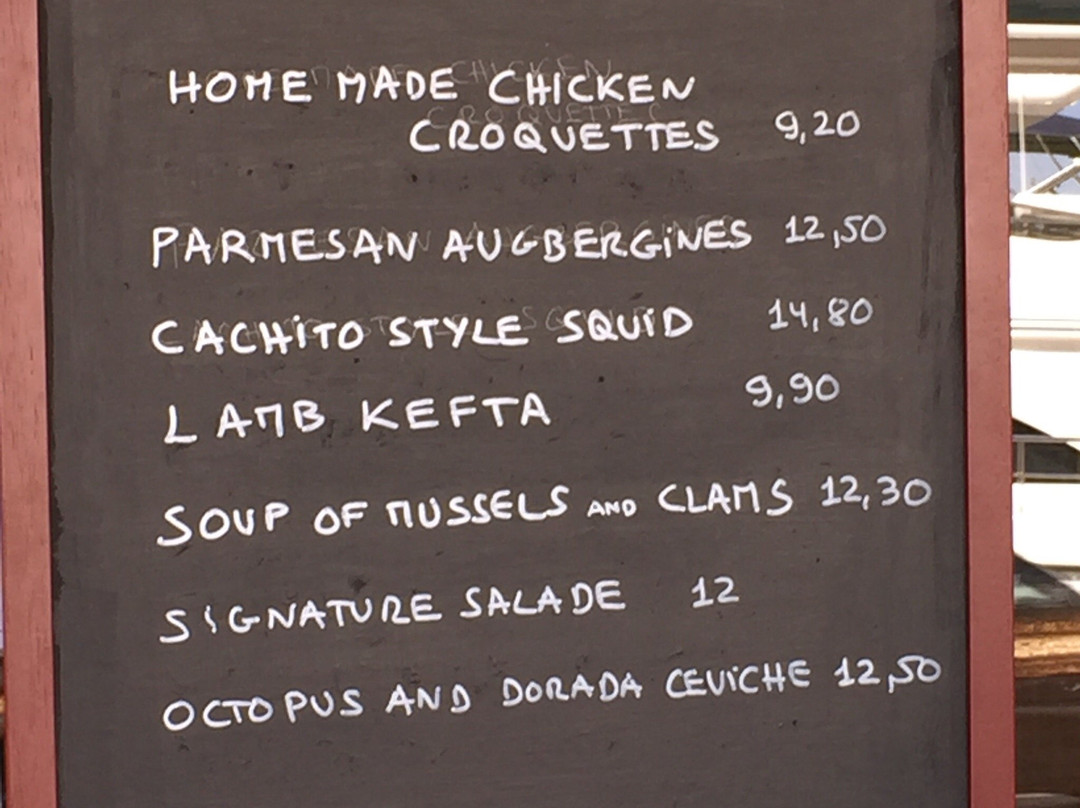 HOME MADE CHICKEN
CROQUETTES 9,20
PARMESAN AUGBERGINES 12,50
CACHITO STYLE SQUID 14,80
LAMB KEFTA 9,90
SOUP OF MUSSELS AND CLAMS 12,30
SIGNATURE SALADE 12
OCTOPUS AND DORADA CEVICHE 12,50